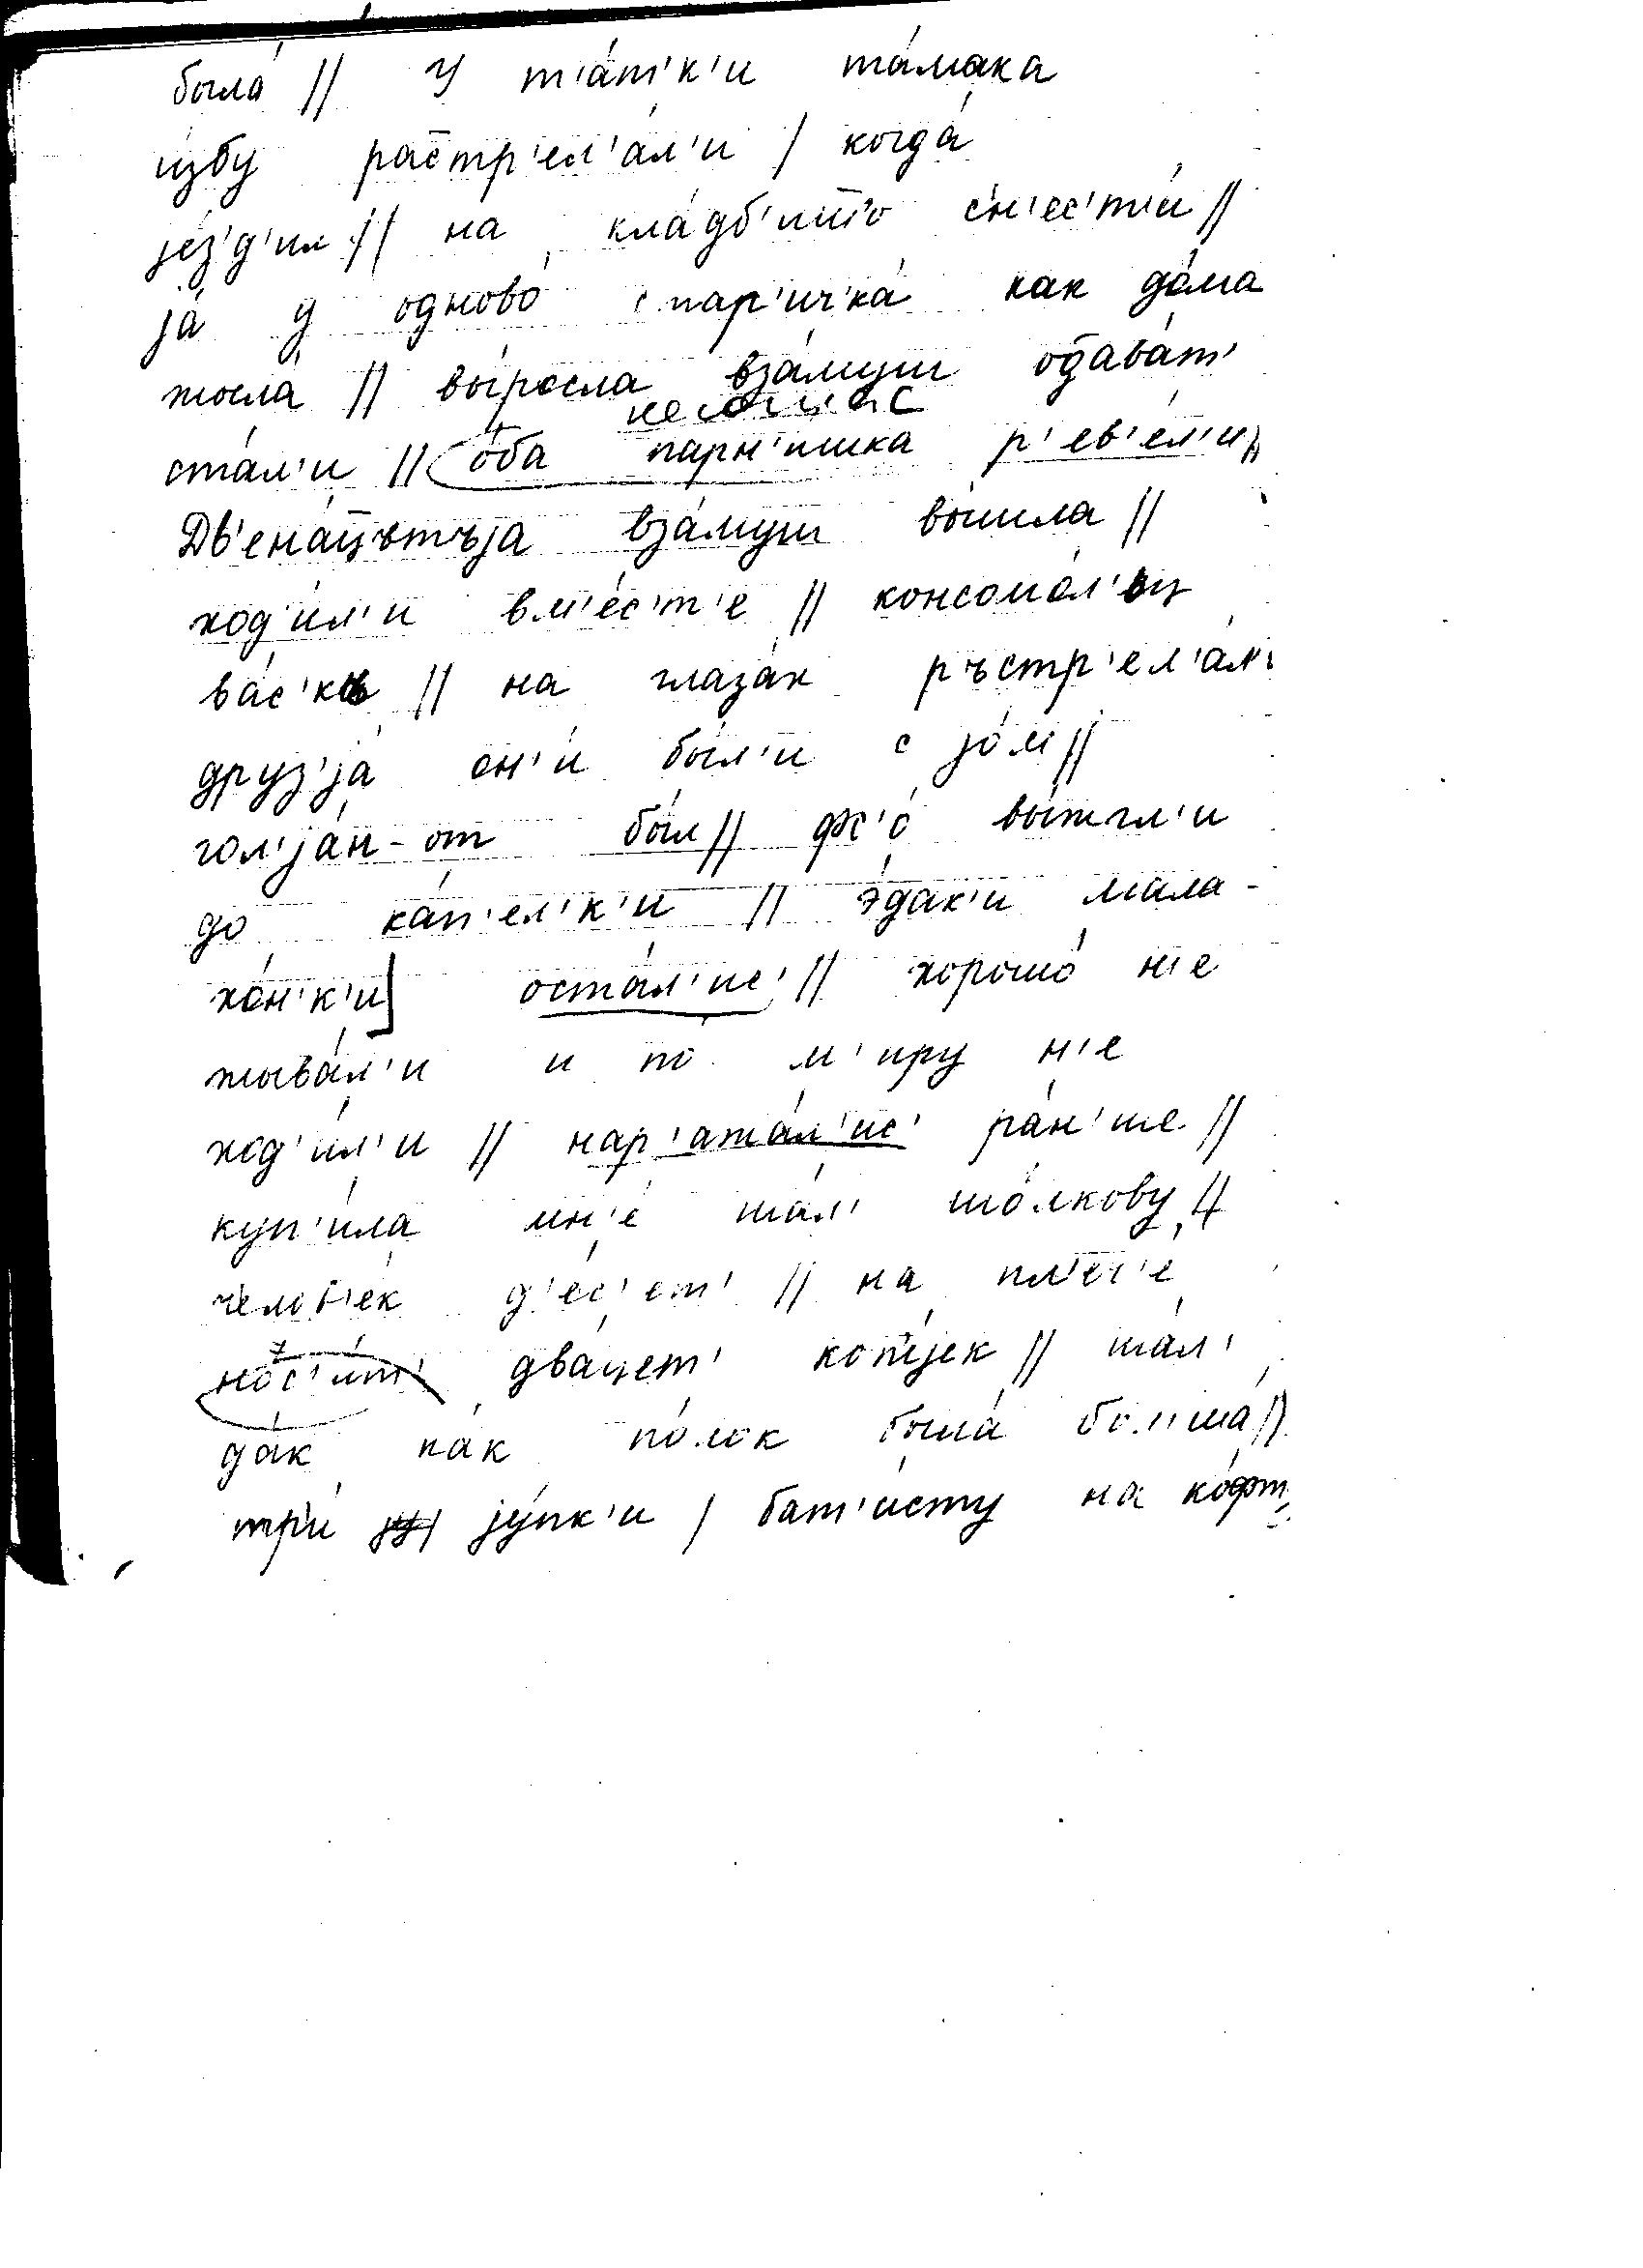 была́ // У т'а́т'к'и та́мака
и́збу растр'ел'а́л'и / когда́
jе́з'д'ил // на кла́дб'ишшо с'н'ес'т'и́ //
jа́ у одново́ стар'ич'ка́ как до́ма
жыла́ // вы́росла вза́муш одава́т'
ста́л'и // о́ба парн'ишка р'ев'е́л'и //
Дв'ена́цътъjа вза́муш вы́шла //
ход'и́л'и вм'е́с'т'е // консомо́л'ьц
ва́с'къ // на глаза́х ръстр'ел'а́л'и
друз'jа́ он'и́ бы́л'и с jо́м //
гол'jа́н-от бы́л // фс'о́ вы́жгл'и
до ка́п'ел'к'и // э́дак'и мала-
хо́н'к'и] оста́л'ис' // хорошо́ н'е
жыва́л'и и по́ м'иру н'е
ход'и́л'и // нар'ажа́л'ис' ра́н'ше //
куп'и́ла мн'е́ ша́л' шо́лкову //
челов'е́к д'е́с'ет' // на пл'еч'е́
нос'и́т' два́цет' копе́jек // ша́л'
да́к как по́лок была́ бол'ша́ //
три́ jу́пк'и / бат'и́сту на ко́фт